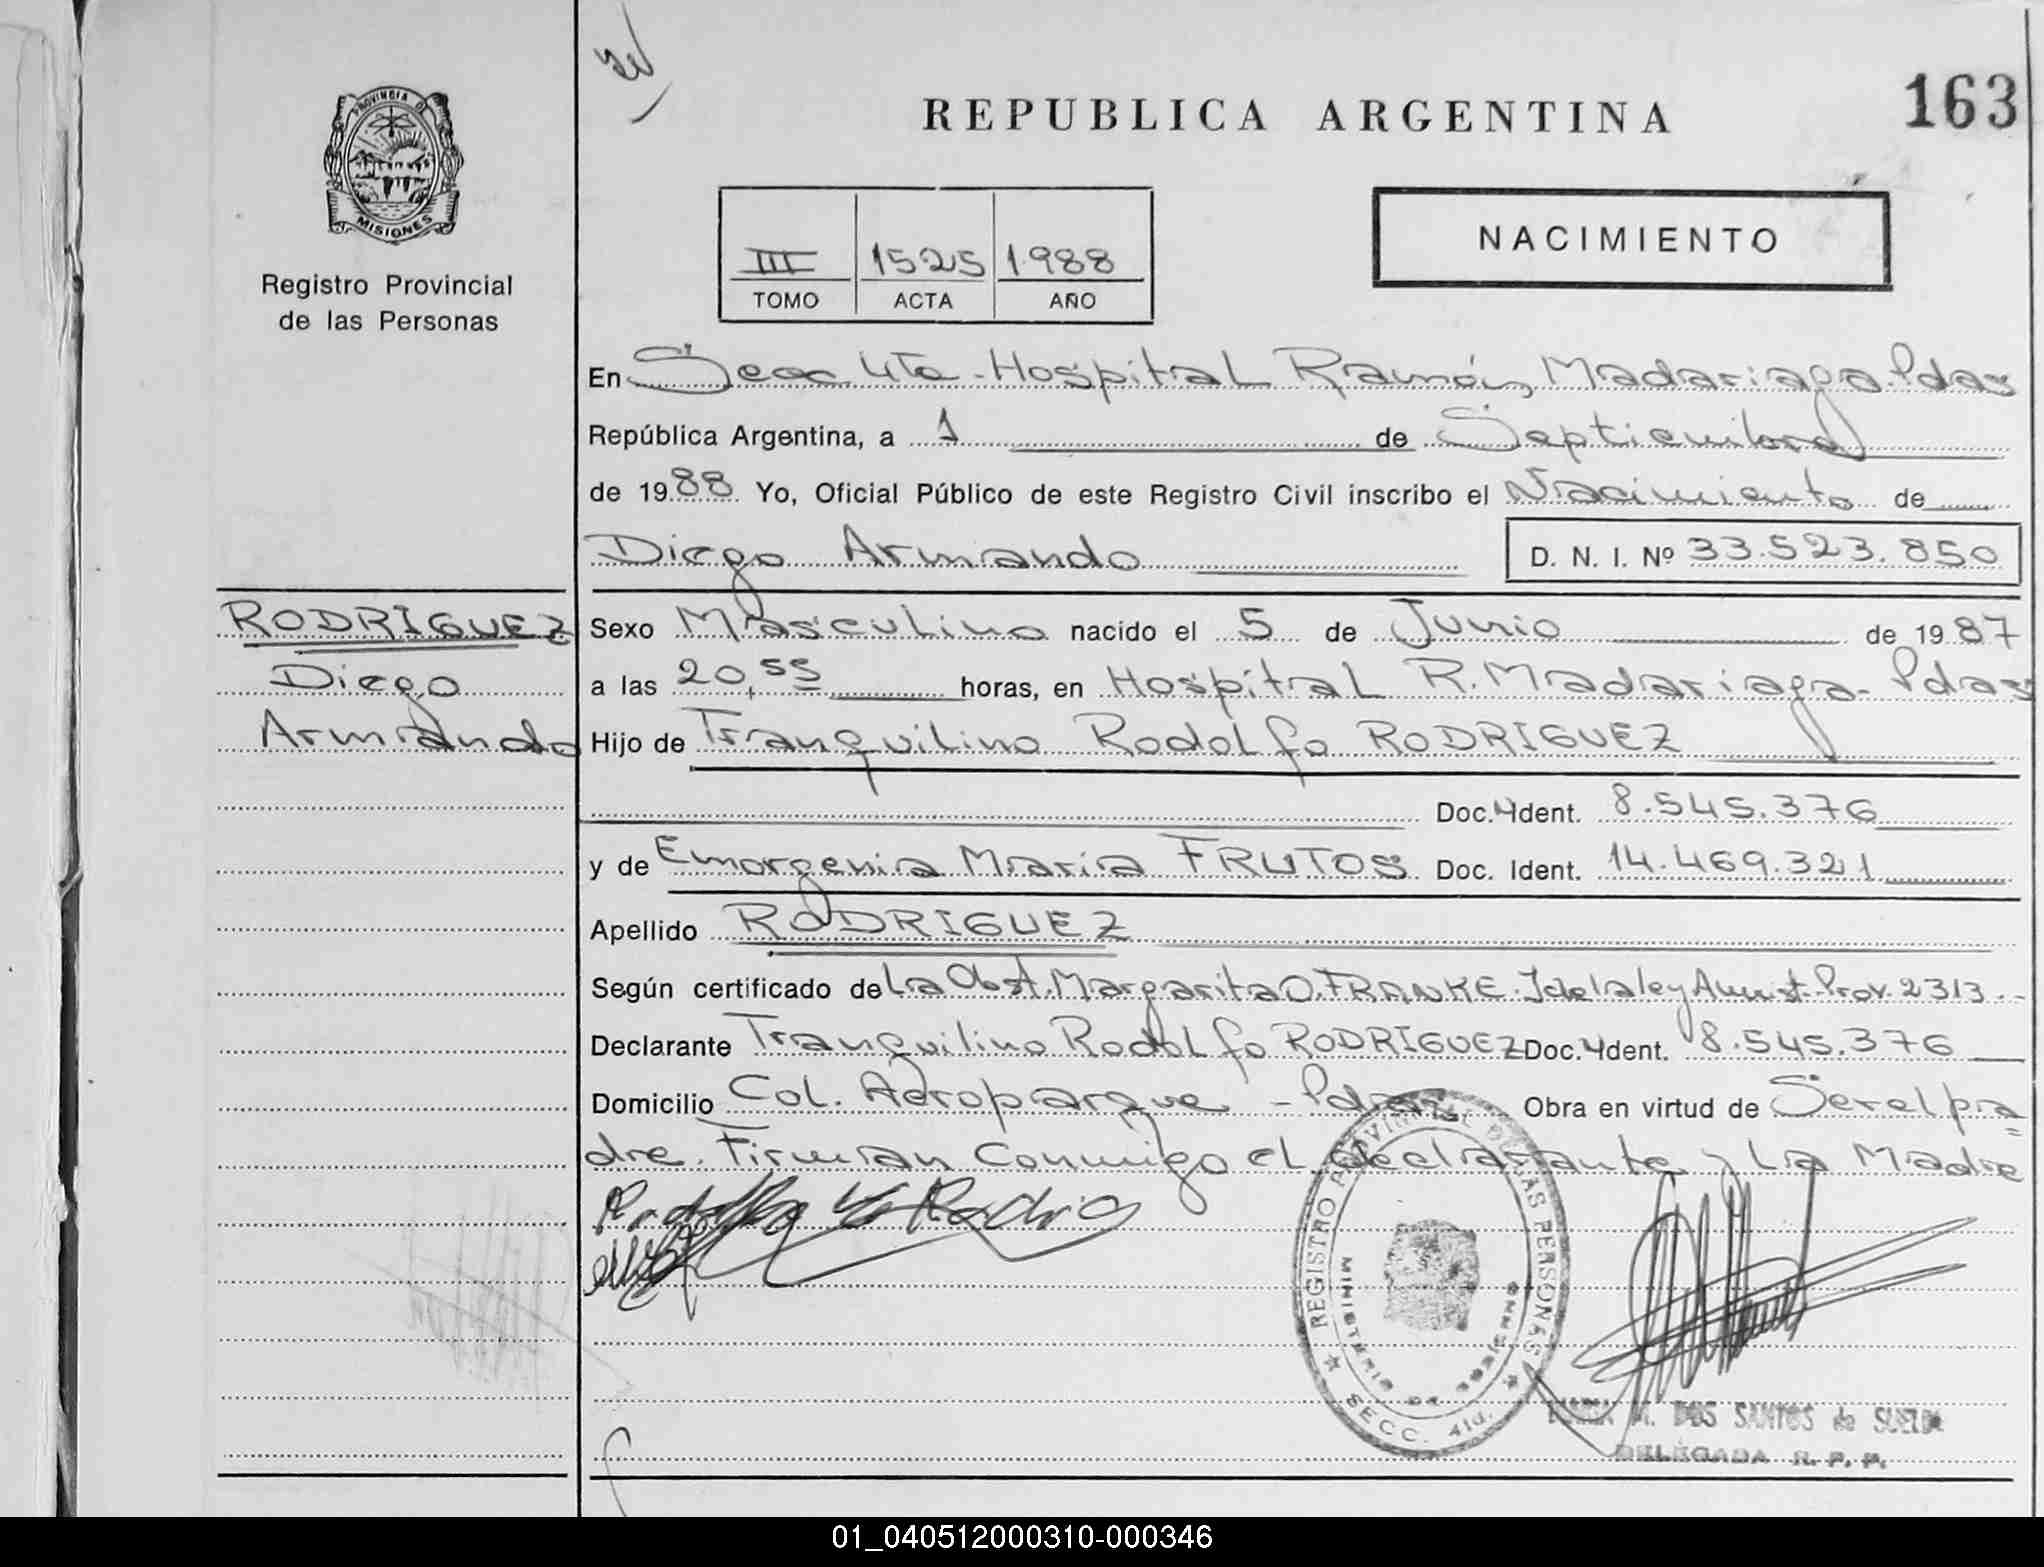 PROVINCIA DE
MISIONES
Registro Provincial
de las Personas
REPUBLICA ARGENTINA
163
III 1525 1988
TOMO ACTA AÑO
NACIMIENTO
En Secc 4ta - Hospital Ramón Madariaga. Pdas
República Argentina, a 1 de Septiembre
de 1988 Yo, Oficial Público de este Registro Civil inscribo el Nacimiento de
Diego Armando D. N. I. Nº 33.523.850
RODRIGUEZ
Diego
Armando
Sexo Masculino nacido el 5 de Junio de 1987
a las 20,55 horas, en Hospital R. Madariaga - Pdas
Hijo de Tranquilino Rodolfo RODRIGUEZ
Doc. Ident. 8.545.376
y de Emorgenia Maria FRUTOS Doc. Ident. 14.469.321
Apellido RODRIGUEZ
Según certificado de La Obst. Margarita O. FRANKE. Idelaley Amnist. Prov. 2313.-
Declarante Tranquilino Rodolfo RODRIGUEZ Doc. Ident. 8.545.376
Domicilio Col. Aeroparque - Pdas Obra en virtud de Ser el pa=
dre. Firman Conmigo el declarante y La Madre
REGISTRO PROVINCIAL DE LAS PERSONAS
MINISTERIO DE GOBIERNO
SECC. 4ta.
M. DOS SANTOS de SUELDO
DELEGADA R. P. P.
01_040512000310-000346